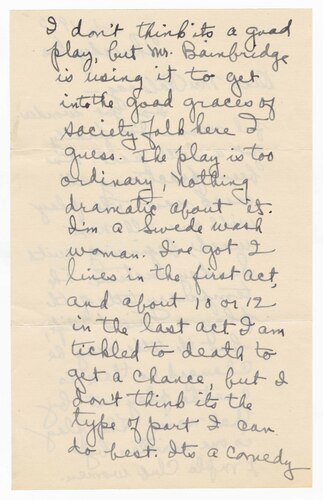 I don't think its a good
play, but Mr. Bainbridge
is using it to get
into the good graces of
society folk here I
guess. The play is too
ordinary, nothing
dramatic about it.
I'm a Swede wash
woman. I've got 2
lines in the first act,
and about 10 or 12
in the last act I am
tickled to death to
get a chance, but I
don't think its the
type of part I can
do best. Its a comedy